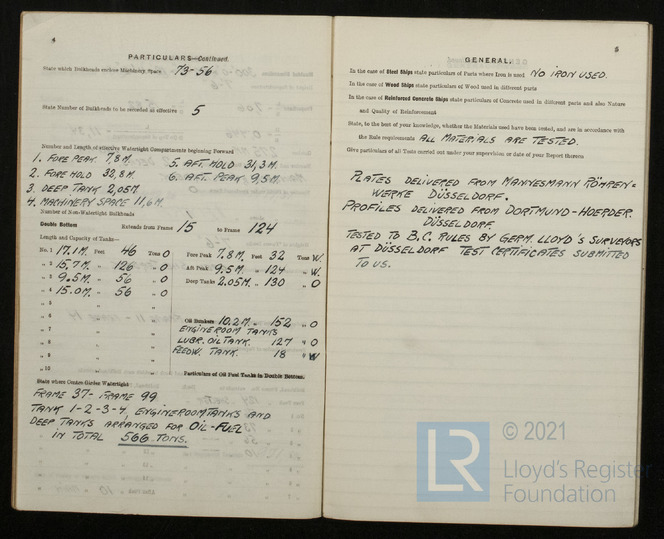 4
PARTICULARS—Continued.
State which Bulkheads enclose Machinery Space 73-56
State Number of Bulkheads to be recorded as effective 5
Number and Length of effective Watertight Compartments beginning Forward
1. FORE PEAK 7,8 M. 5. AFT. HOLD 31,3 M.
2. FORE HOLD 32,8 M. 6. AFT. PEAK 9,5 M.
3. DEEP TANK 2,05 M.
4. MACHINERY SPACE 11,6 M.
Number of Non-Watertight Bulkheads
Double Bottom Extends from Frame 15 to Frame 124
Length and Capacity of Tanks—
No. 1 17.1 M. Feet 46 Tons O Fore Peak 7,8 M. Feet 32 Tons W.
„ 2 15,7 M. „ 126 „ O Aft Peak 9,5 M. „ 124 „ W.
„ 3 9,5 M. „ 56 „ O Deep Tank 2.05 M. „ 130 „ O
„ 4 15.0 M. „ 56 „ O
„ 5 „ „
„ 6 „ „ Oil Bunkers 10.2 M. „ 152 „ O
„ 7 „ „ ENGINEROOM TANKS
„ 8 „ „ LUBR. OIL TANK. 127 „ O
„ 9 „ „ FEEDW. TANK. 18 „ W
„ 10 „ „ Particulars of Oil Fuel Tanks in Double Bottom.
State where Centre Girder Watertight
FRAME 37 - FRAME 99
TANK 1-2-3-4, ENGINEROOM TANKS AND
DEEP TANKS ARRANGED FOR OIL-FUEL
IN TOTAL 566 TONS.
5
GENERAL.
In the case of Steel Ships state particulars of Parts where Iron is used NO IRON USED.
In the case of Wood Ships state particulars of Wood used in different parts
In the case of Reinforced Concrete Ships state particulars of Concrete used in different parts and also Nature
and Quality of Reinforcement
State, to the best of your knowledge, whether the Materials used have been tested, and are in accordance with
the Rule requirements ALL MATERIALS ARE TESTED.
Give particulars of all Tests carried out under your supervision or date of your Report thereon
PLATES DELIVERED FROM MANNESMANN RÖHREN=
WERKE DÜSSELDORF.
PROFILES DELIVERED FROM DORTMUND-HOERDER
DÜSSELDORF
TESTED TO B.C. RULES BY GERM. LLOYD'S SURVEYORS
AT DÜSSELDORF TEST CERTIFICATES SUBMITTED
TO US.
LR
© 2021
Lloyd's Register
Foundation